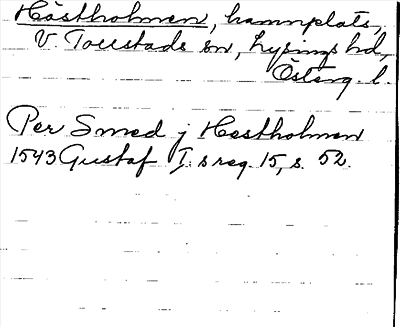 Hästholmen, hamnplats,
V. Tollstads sn, Lysings hd,
Österg. l.
Per Smed j Hestholmen
1543 Gustaf I:s reg. 15, s. 52.